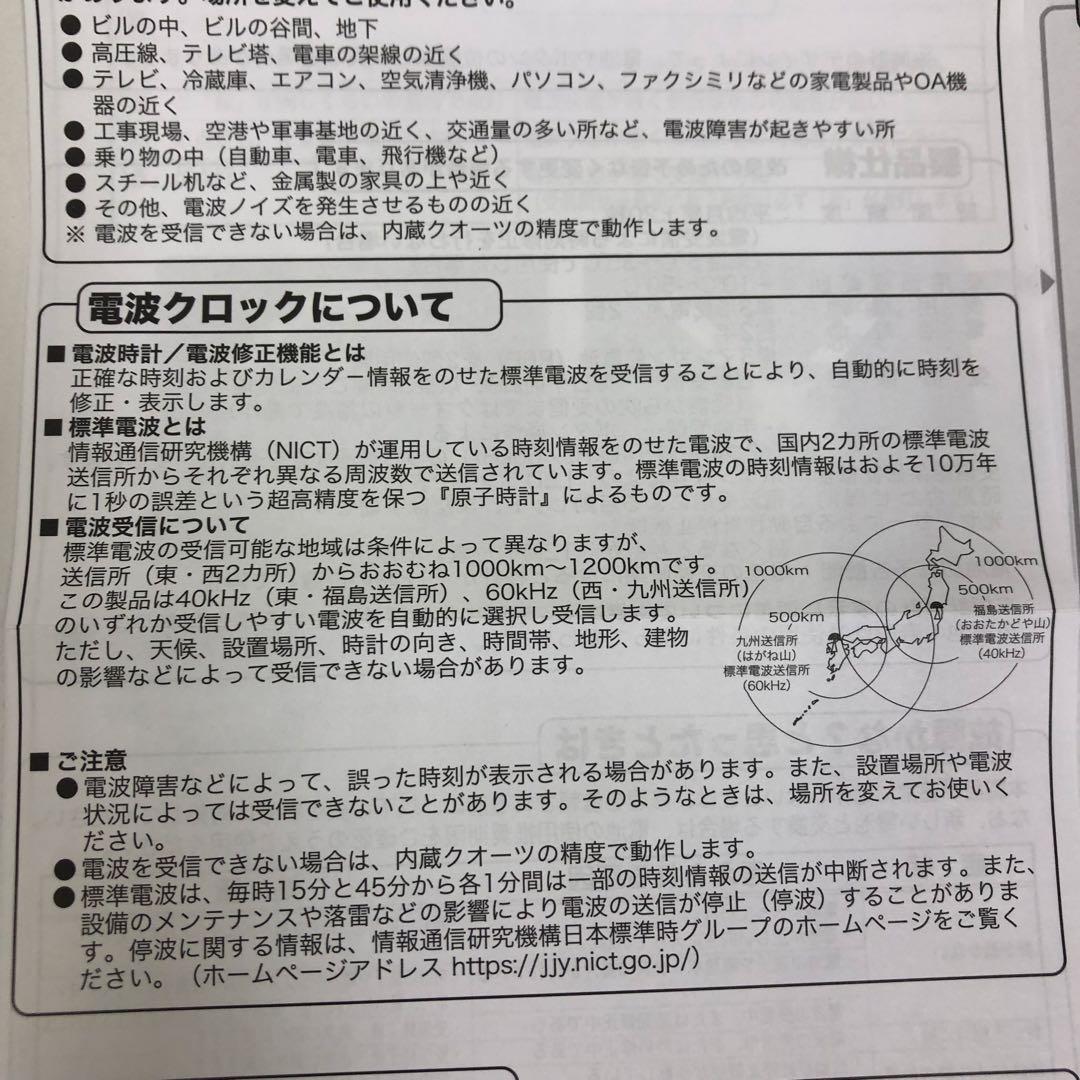 があります。場所を変えてご使用ください。
● ビルの中、ビルの谷間、地下
● 高圧線、テレビ塔、電車の架線の近く
● テレビ、冷蔵庫、エアコン、空気清浄機、パソコン、ファクシミリなどの家電製品やOA機
器の近く
● 工事現場、空港や軍事基地の近く、交通量の多い所など、電波障害が起きやすい所
● 乗り物の中（自動車、電車、飛行機など）
● スチール机など、金属製の家具の上や近く
● その他、電波ノイズを発生させるものの近く
※ 電波を受信できない場合は、内蔵クオーツの精度で動作します。
電波クロックについて
■ 電波時計／電波修正機能とは
正確な時刻およびカレンダー情報をのせた標準電波を受信することにより、自動的に時刻を
修正・表示します。
■ 標準電波とは
情報通信研究機構（NICT）が運用している時刻情報をのせた電波で、国内2カ所の標準電波
送信所からそれぞれ異なる周波数で送信されています。標準電波の時刻情報はおよそ10万年
に1秒の誤差という超高精度を保つ『原子時計』によるものです。
■ 電波受信について
標準電波の受信可能な地域は条件によって異なりますが、
送信所（東・西2カ所）からおおむね1000km～1200kmです。
この製品は40kHz（東・福島送信所）、60kHz（西・九州送信所）
のいずれか受信しやすい電波を自動的に選択し受信します。
ただし、天候、設置場所、時計の向き、時間帯、地形、建物
の影響などによって受信できない場合があります。
1000km
500km
九州送信所
（はがね山）
標準電波送信所
（60kHz）
1000km
500km
福島送信所
（おおたかどや山）
標準電波送信所
（40kHz）
■ ご注意
● 電波障害などによって、誤った時刻が表示される場合があります。また、設置場所や電波
状況によっては受信できないことがあります。そのようなときは、場所を変えてお使いく
ださい。
● 電波を受信できない場合は、内蔵クオーツの精度で動作します。
● 標準電波は、毎時15分と45分から各1分間は一部の時刻情報の送信が中断されます。また、
設備のメンテナンスや落雷などの影響により電波の送信が停止（停波）することがありま
す。停波に関する情報は、情報通信研究機構日本標準時グループのホームページをご覧く
ださい。（ホームページアドレス https://jjy.nict.go.jp/）